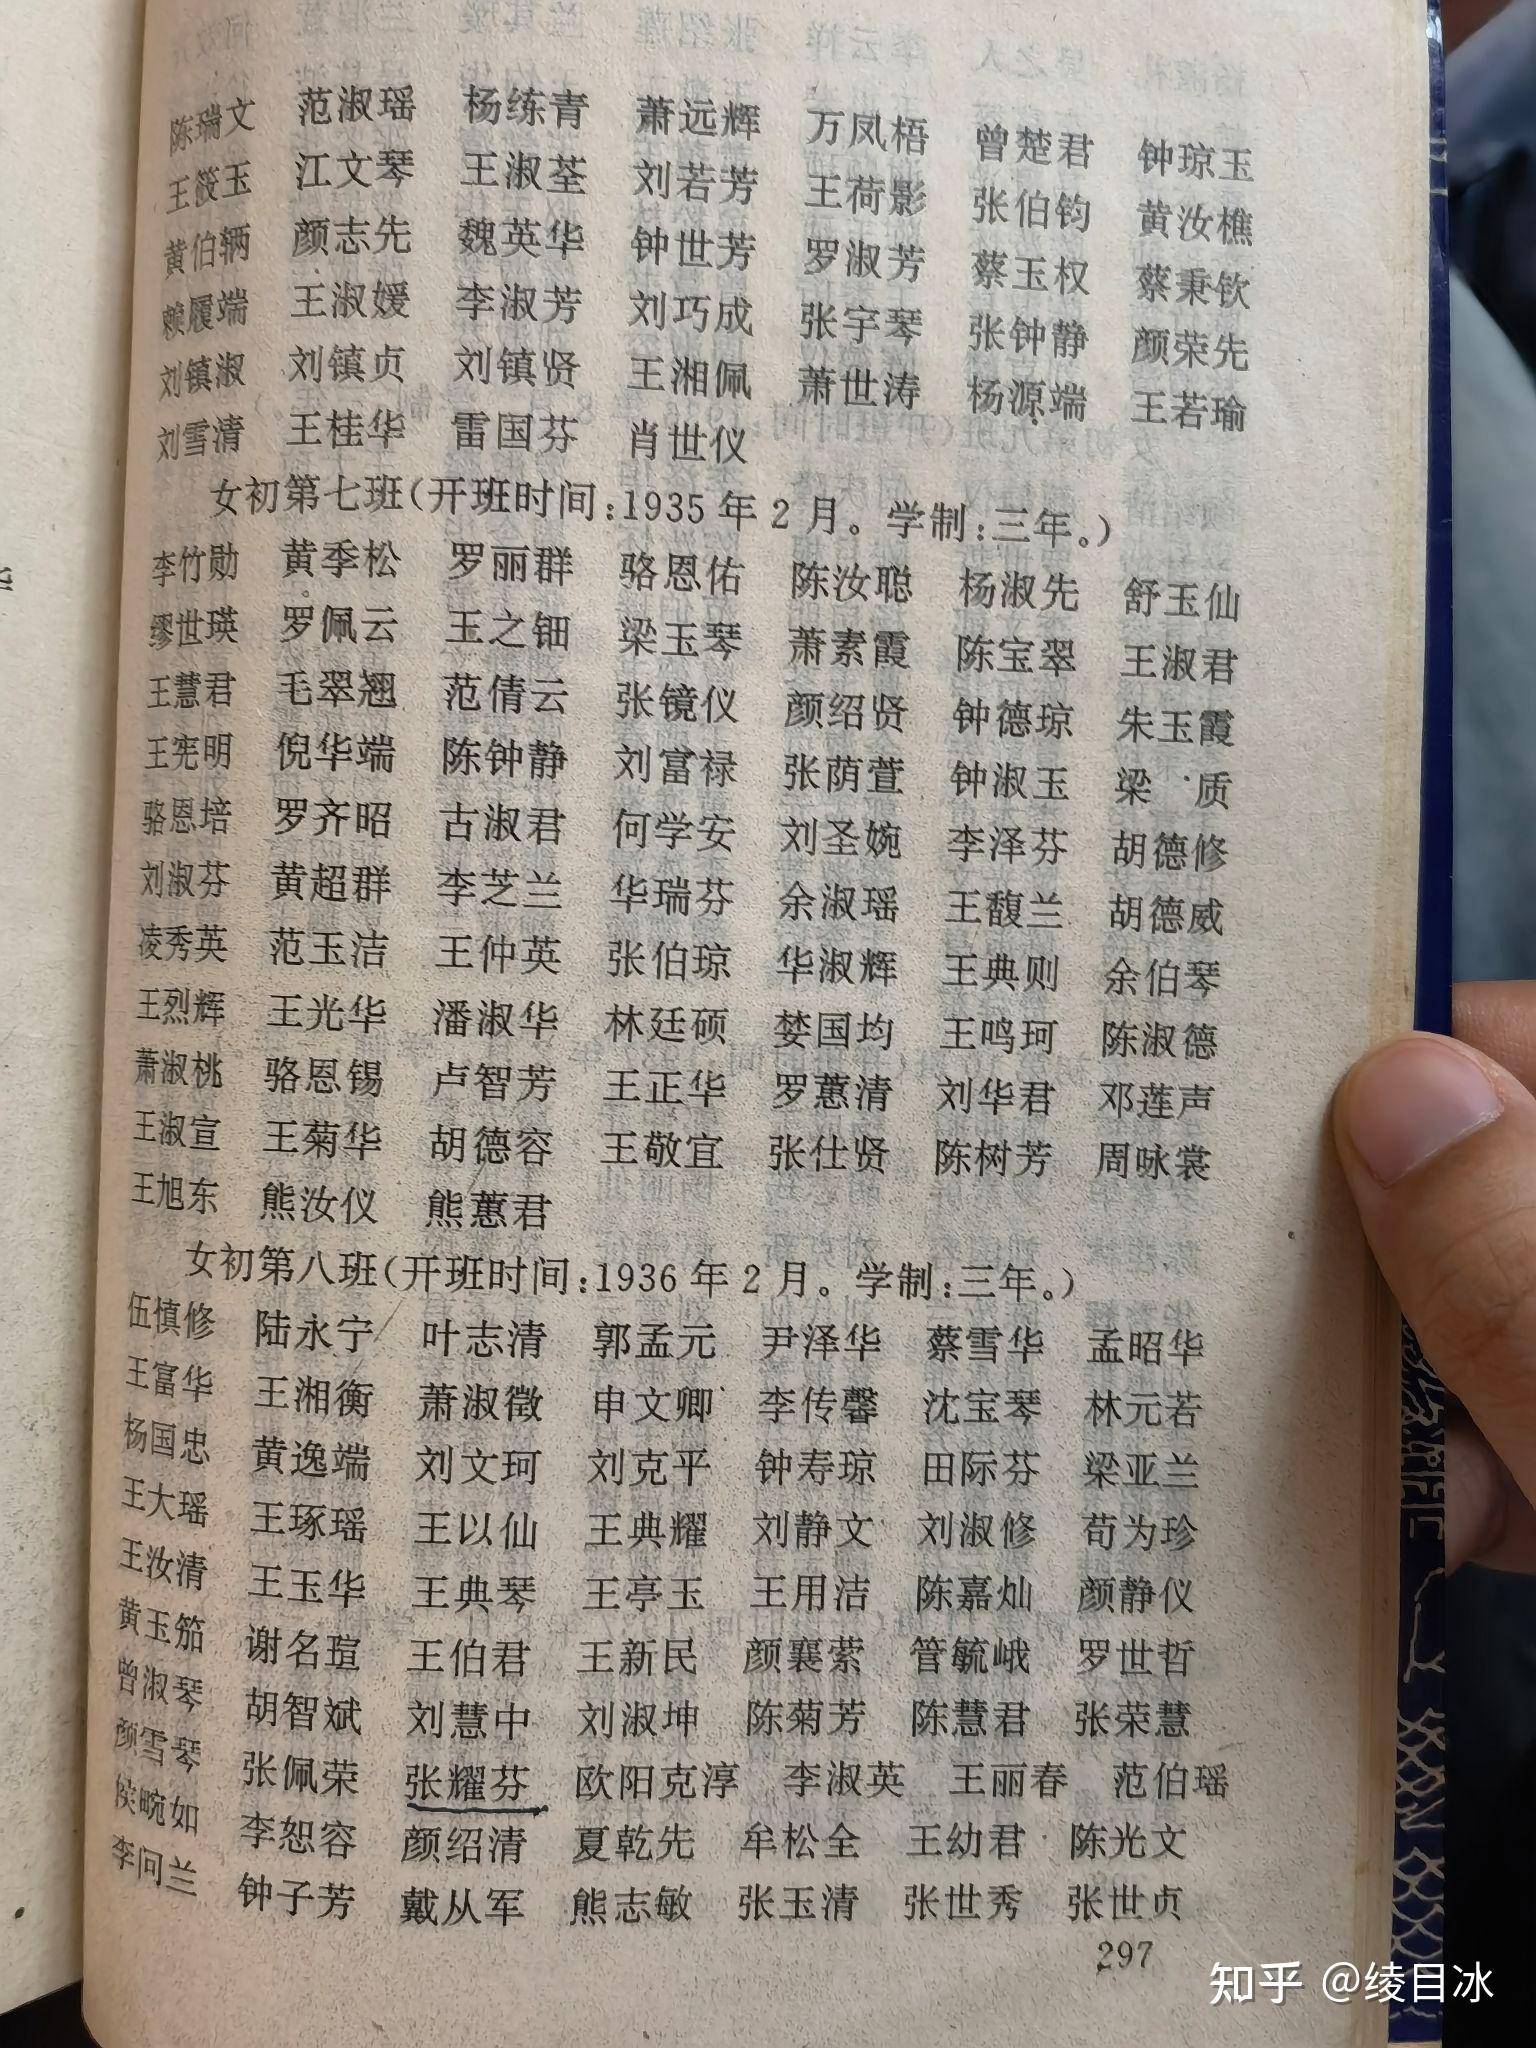 陈瑞文 范淑瑶 杨练青 萧远辉 万凤梧 曾楚君 钟琼玉
王筱玉 江文琴 王淑荃 刘若芳 王荷影 张伯钧 黄汝樵
黄伯辆 颜志先 魏英华 钟世芳 罗淑芳 蔡玉权 蔡秉钦
赖履端 王淑媛 李淑芳 刘巧成 张宇琴 张钟静 颜荣先
刘镇淑 刘镇贞 刘镇贤 王湘佩 萧世涛 杨源端 王若瑜
刘雪清 王桂华 雷国芬 肖世仪
女初第七班(开班时间:1935年2月。学制:三年。)
李竹勋 黄季松 罗丽群 骆恩佑 陈汝聪 杨淑先 舒玉仙
缪世瑛 罗佩云 王之钿 梁玉琴 萧素霞 陈宝翠 王淑君
王慧君 毛翠翘 范倩云 张镜仪 颜绍贤 钟德琼 朱玉霞
王宪明 倪华端 陈钟静 刘富禄 张荫萱 钟淑玉 梁 质
骆恩培 罗齐昭 古淑君 何学安 刘圣婉 李泽芬 胡德修
刘淑芬 黄超群 李芝兰 华瑞芬 余淑瑶 王馥兰 胡德威
凌秀英 范玉洁 王仲英 张伯琼 华淑辉 王典则 余伯琴
王烈辉 王光华 潘淑华 林廷硕 婪国均 王鸣珂 陈淑德
萧淑桃 骆恩锡 卢智芳 王正华 罗蕙清 刘华君 邓莲声
王淑宣 王菊华 胡德容 王敬宜 张仕贤 陈树芳 周咏裳
王旭东 熊汝仪 熊蕙君
女初第八班(开班时间:1936年2月。学制:三年。)
伍慎修 陆永宁 叶志清 郭孟元 尹泽华 蔡雪华 孟昭华
王富华 王湘衡 萧淑徵 申文卿 李传馨 沈宝琴 林元若
杨国忠 黄逸端 刘文珂 刘克平 钟寿琼 田际芬 梁亚兰
王大瑶 王琢瑶 王以仙 王典耀 刘静文 刘淑修 苟为珍
王汝清 王玉华 王典琴 王亭玉 王用洁 陈嘉灿 颜静仪
黄玉笳 谢名瑄 王伯君 王新民 颜襄萦 管毓峨 罗世哲
曾淑琴 胡智斌 刘慧中 刘淑坤 陈菊芳 陈慧君 张荣慧
颜雪琴 张佩荣 张耀芬 欧阳克淳 李淑英 王丽春 范伯瑶
侯畹如 李恕容 颜绍清 夏乾先 牟松全 王幼君 陈光文
李问兰 钟子芳 戴从军 熊志敏 张玉清 张世秀 张世贞
297
知乎 @绫目冰